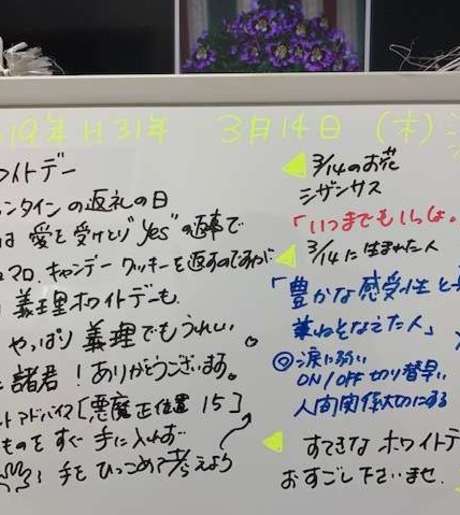 19年 H31年 3月14日 (木)
イトデー
ンタインの返礼の日
は 愛を受けとり"Yes"の返事で
マロ、キャンデー クッキーを返すのですが
義理ホワイトデーも、
やっぱり 義理でもうれしい。
諸君！ありがとうございます。
アドバイス [悪魔正位置 15]
ものを すぐ 手に入れず
手を ひっこめて考えよう
3/14のお花
シザンサス
「いつまでもいっしょ。
3/14に生まれた人
「豊かな 感受性と
兼ねそなえた人」
◎涙に弱い
ON/OFF 切り替早い
人間関係大切にする
すてきな ホワイトデ
おすごし下さいませ.